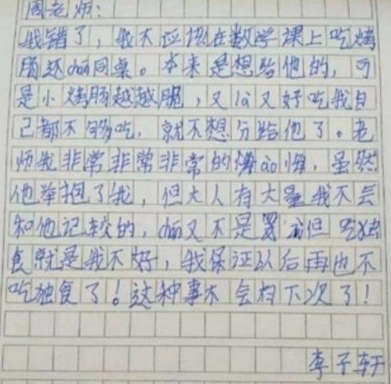 周老师：
我错了，我不应现在数学课上吃烤
肠还chán同桌。本来是想给他的，可
是小烤肠越越脆，又 又好吃我自
己都不够吃，就不想分给他了。老
师我非常非常非常的 悔，虽然
他举抱了我，但大人有大量我不会
和他记较的，chán又不是罢 但吃独
食就是我不好，我保证以后再也不
吃独食了！这种事不会有下次了！
李子轩